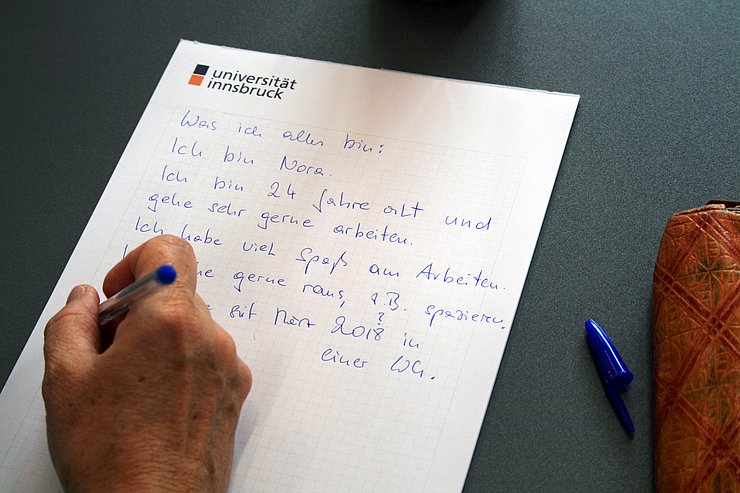 universität
innsbruck
Was ich alles bin:
Ich bin Nora.
Ich bin 24 Jahre alt und
gehe sehr gerne arbeiten.
Ich habe viel Spaß am Arbeiten.
gerne raus, z.B. spazieren.
seit März 2018 in
?
einer WG.